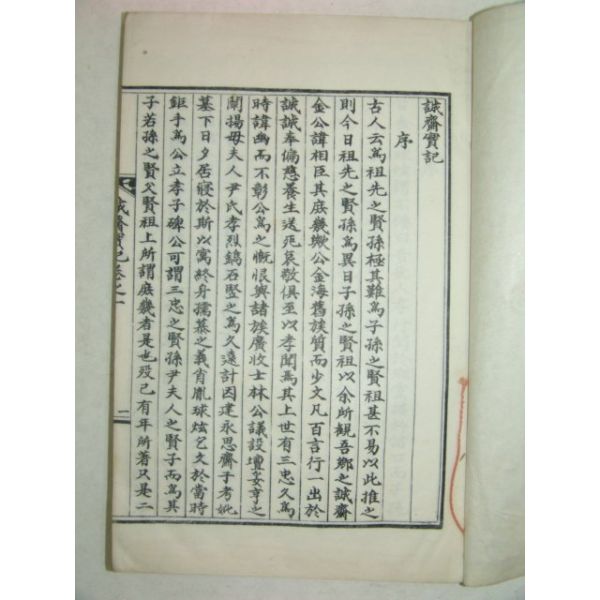 誠齋實記
序
古人云爲祖先之賢孫極其難爲子孫之賢祖甚不易以此推之
則今日祖先之賢孫爲異日子孫之賢祖以余所觀吾鄕之誠齋
金公諱相臣其庶幾歟公金海舊族質而少文凡百言行一出於
誠誠奉偏慈養生送死哀敬俱至以孝聞焉其上世有三忠久爲
時諱幽而不彰公爲之慨恨與諸族廣收士林公議設壇妥享之
闡揚毋夫人尹氏孝烈鐫石竪之爲久遠計因建永思齋于考妣
墓下日夕居寢於斯以寓終身孺慕之義肖胤球炫乞文於當時
鉅手爲公立孝子碑公可謂三忠之賢孫尹夫人之賢子而爲其
子若孫之賢父賢祖上所謂庶幾者是也歿已有年所著只是二
誠齋實記卷之一
二